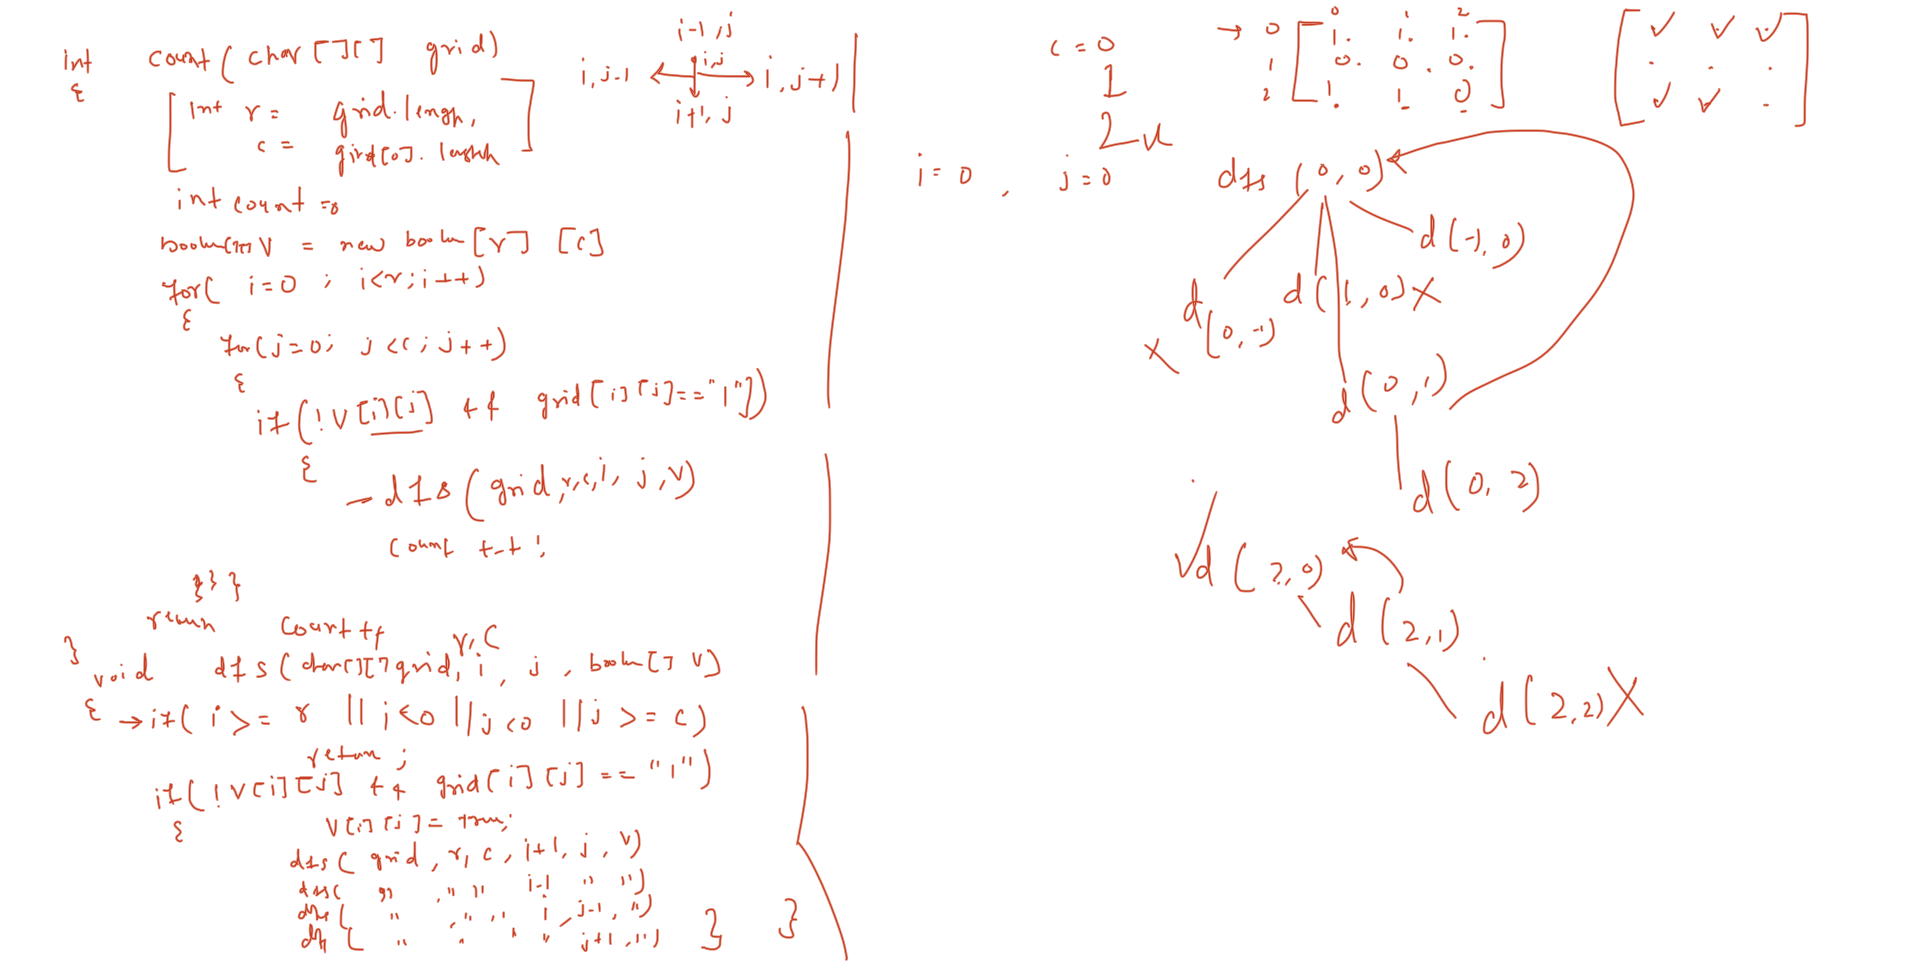 int count( char [][] grid)
{
[ int r = grid.length,
c = grid[0].length ]
int count =0
boolean[][] V = new boolean [r] [c]
for( i=0 ; i<r; i++)
{
for( j=0; j<c; j++)
{
if( !V[i][j] && grid[i][j]=="1"])
{
- dfs( grid, r,c,i, j, v)
count ++;
}}}
return count++
}
void dfs( char[][] grid, i, j, boolean[] V)
r, c
{ →if( i >= r || i<0 || j<0 || j >= c)
return ;
if( !V[i][j] && grid[i][j] == "1")
{
V[i][j] = true;
dfs( grid, r, c, i+1, j, v)
dfs( " , " " i-1 " ")
dfs( " , " " i, j-1, ")
dfs( " " " " j+1, ") } }
i-1, j
i, j-1 i, j i, j+1
i+1, j
c = 0
1
2
i = 0 , j = 0
0 1 2
→ 0 [ 1. 1. 1. ]
1 0. 0. 0.
2 1. 1 0
[ ✓ ✓ ✓
. . .
✓ ✓ . ]
dfs (0, 0)
d (-1, 0)
d (1, 0) X
d (0, -1)
X
d (0, 1)
d (0, 2)
✓d (2, 0)
d (2, 1)
d (2, 2) X